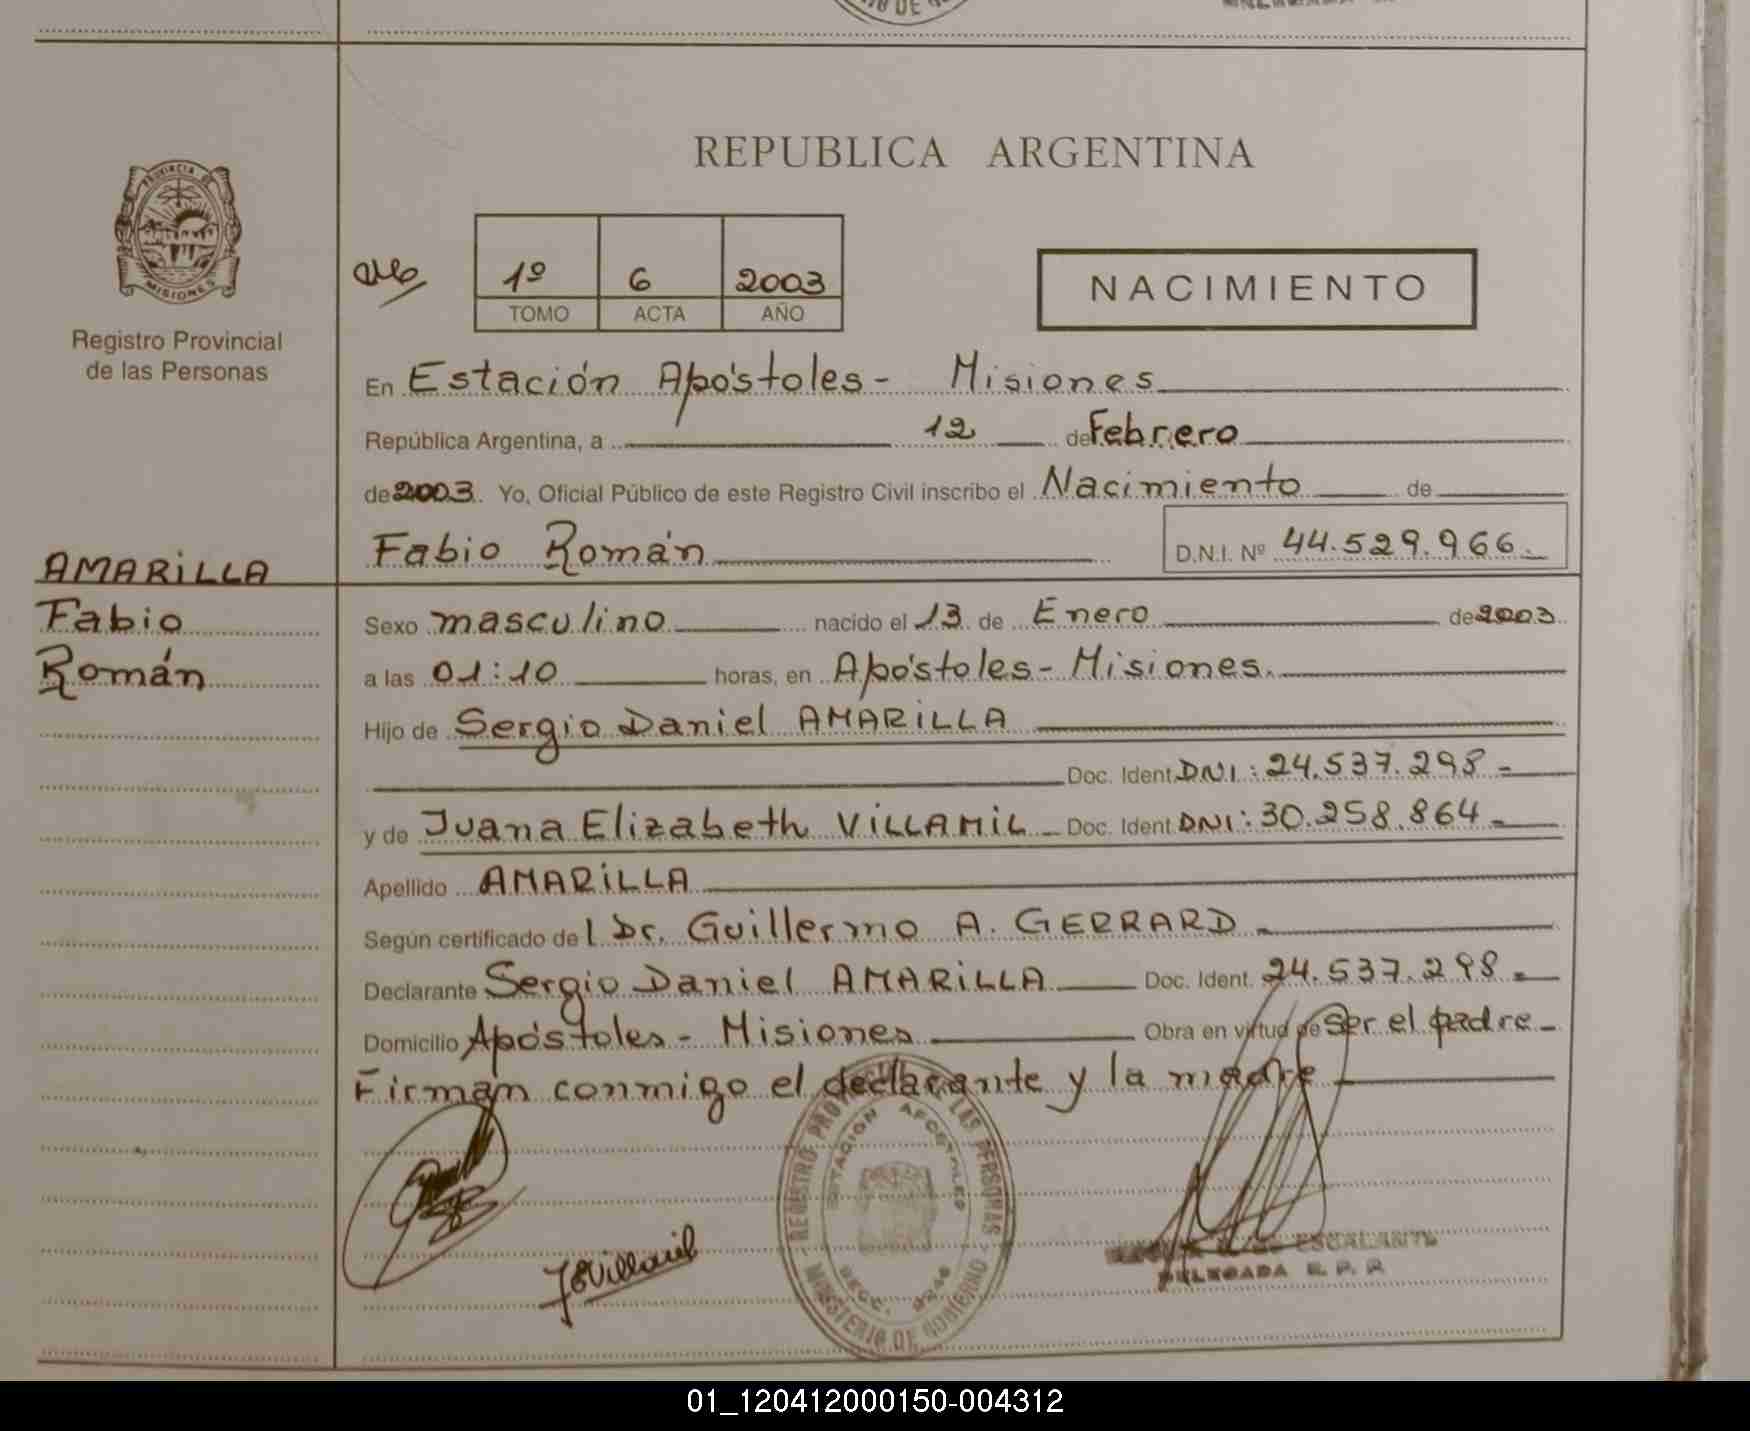 REPUBLICA ARGENTINA
PROVINCIA DE
MISIONES
Registro Provincial
de las Personas
1º 6 2003
TOMO ACTA AÑO
NACIMIENTO
En Estación Apóstoles - Misiones
República Argentina, a 12 de Febrero
de 2003. Yo, Oficial Público de este Registro Civil inscribo el Nacimiento de
Fabio Román D.N.I. Nº 44.529.966.
AMARiLLA
Fabio
Román
Sexo masculino nacido el 13 de Enero de 2003
a las 01:10 horas, en Apóstoles - Misiones.
Hijo de Sergio Daniel AMARiLLA
Doc. Ident. DNI: 24.537.298 -
y de Juana Elizabeth ViLLAMiL Doc. Ident. DNI: 30.258.864 -
Apellido AMARiLLA
Según certificado de l Dr. Guillermo A. GERRARD
Declarante Sergio Daniel AMARiLLA Doc. Ident. 24.537.298 -
Domicilio Apóstoles - Misiones Obra en virtud de Ser el padre -
Firman conmigo el declarante y la madre
REGISTRO PROVINCIAL DE LAS PERSONAS
ESTACION APOSTOLES
MINISTERIO DE GOBIERNO
ESCALANTE
DELEGADA R. P. P.
01_120412000150-004312